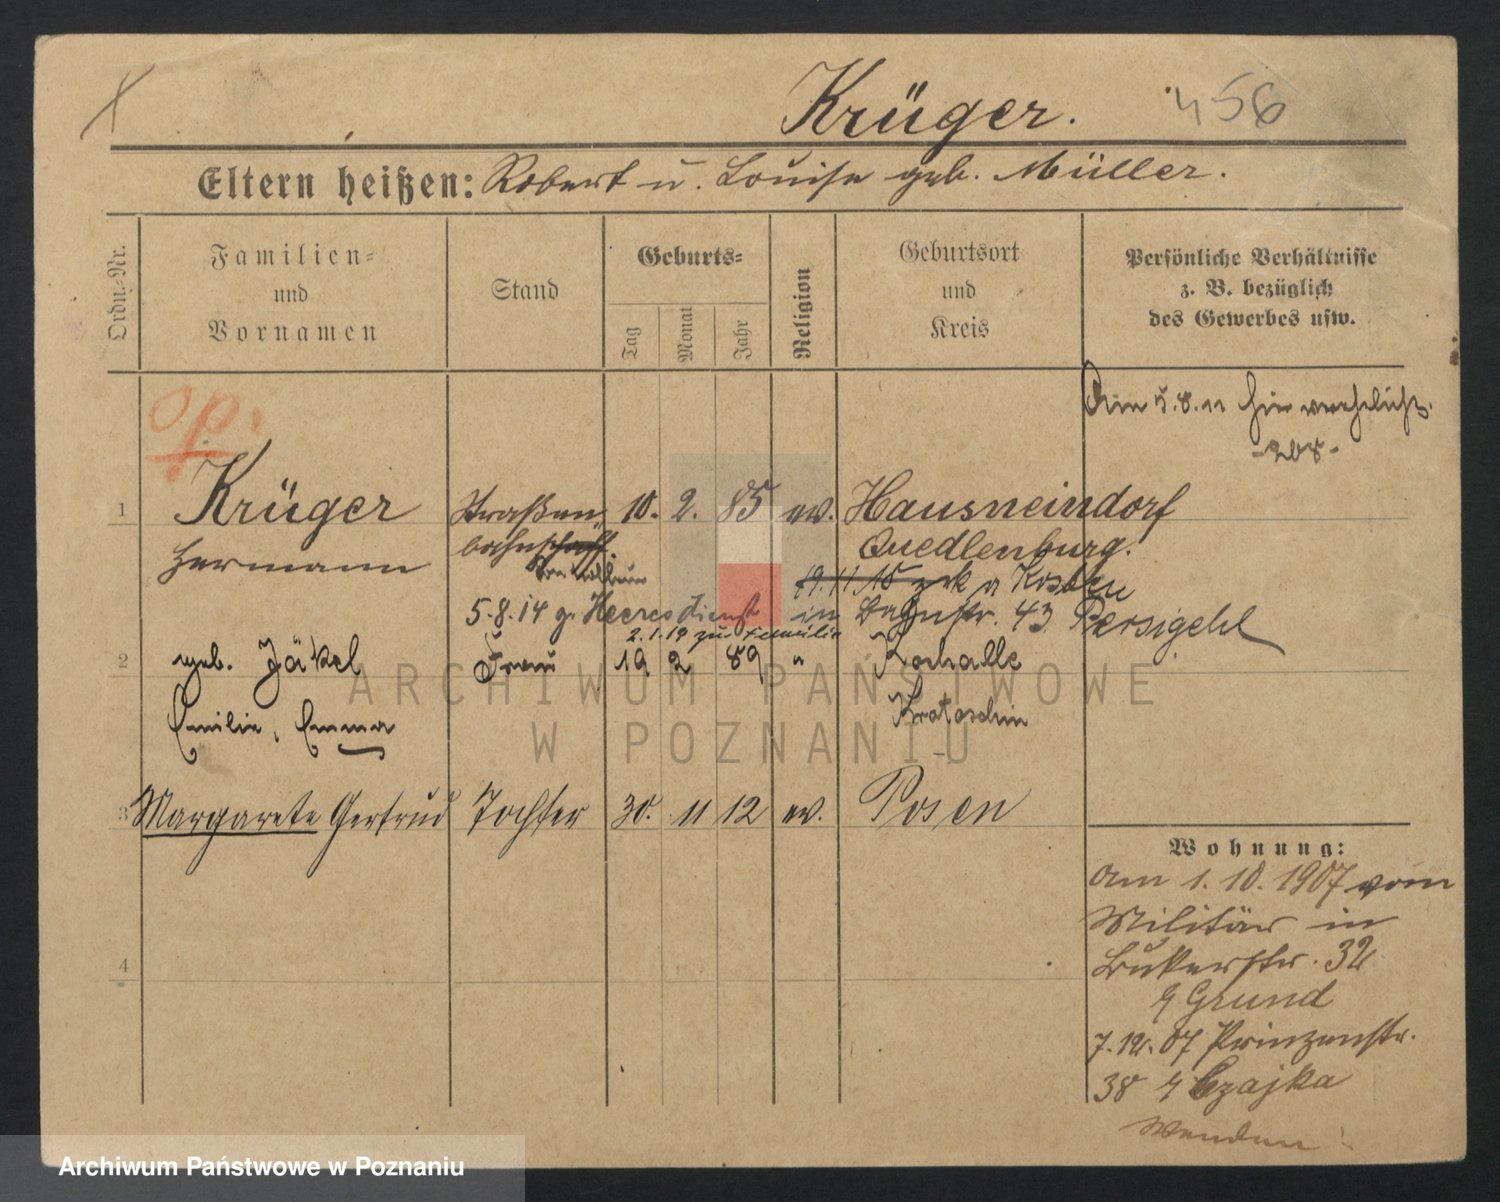 Krüger. 456
Eltern heißen: Robert u. Louise geb. Müller.
Ordn.-Nr.
Familien-
und
Vornamen
Stand
Geburts-
Tag
Monat
Jahr
Religion
Geburtsort
und
Kreis
Persönliche Verhältnisse
z. B. bezüglich
des Gewerbes usw.
Am 5.8.11 hier verehelicht.
op.
1 Krüger Straßen 10. 2. 85 ev. Hausneindorf
Hermann bahnschaff. Quedlenburg.
19.11.15 zrk a Kosten
5.8.14 z. Heeresdienst in Bahnstr. 43 Persigehl
2.1.19 zur Familie
2 geb. Jäkel Frau 19 2 89 " Koschalle
Emilie, Emma Krotoschin
3 Margarete Gertrud Tochter 30. 11 12 ev. Posen
4
Wohnung:
Am 1. 10. 1907 vom
Militär in
Bukerstr. 32
Grund
7.12.07 Prinzenstr.
38 Czajka
Wenden
ARCHIWUM PAŃSTWOWE
W POZNANIU
Archiwum Państwowe w Poznaniu